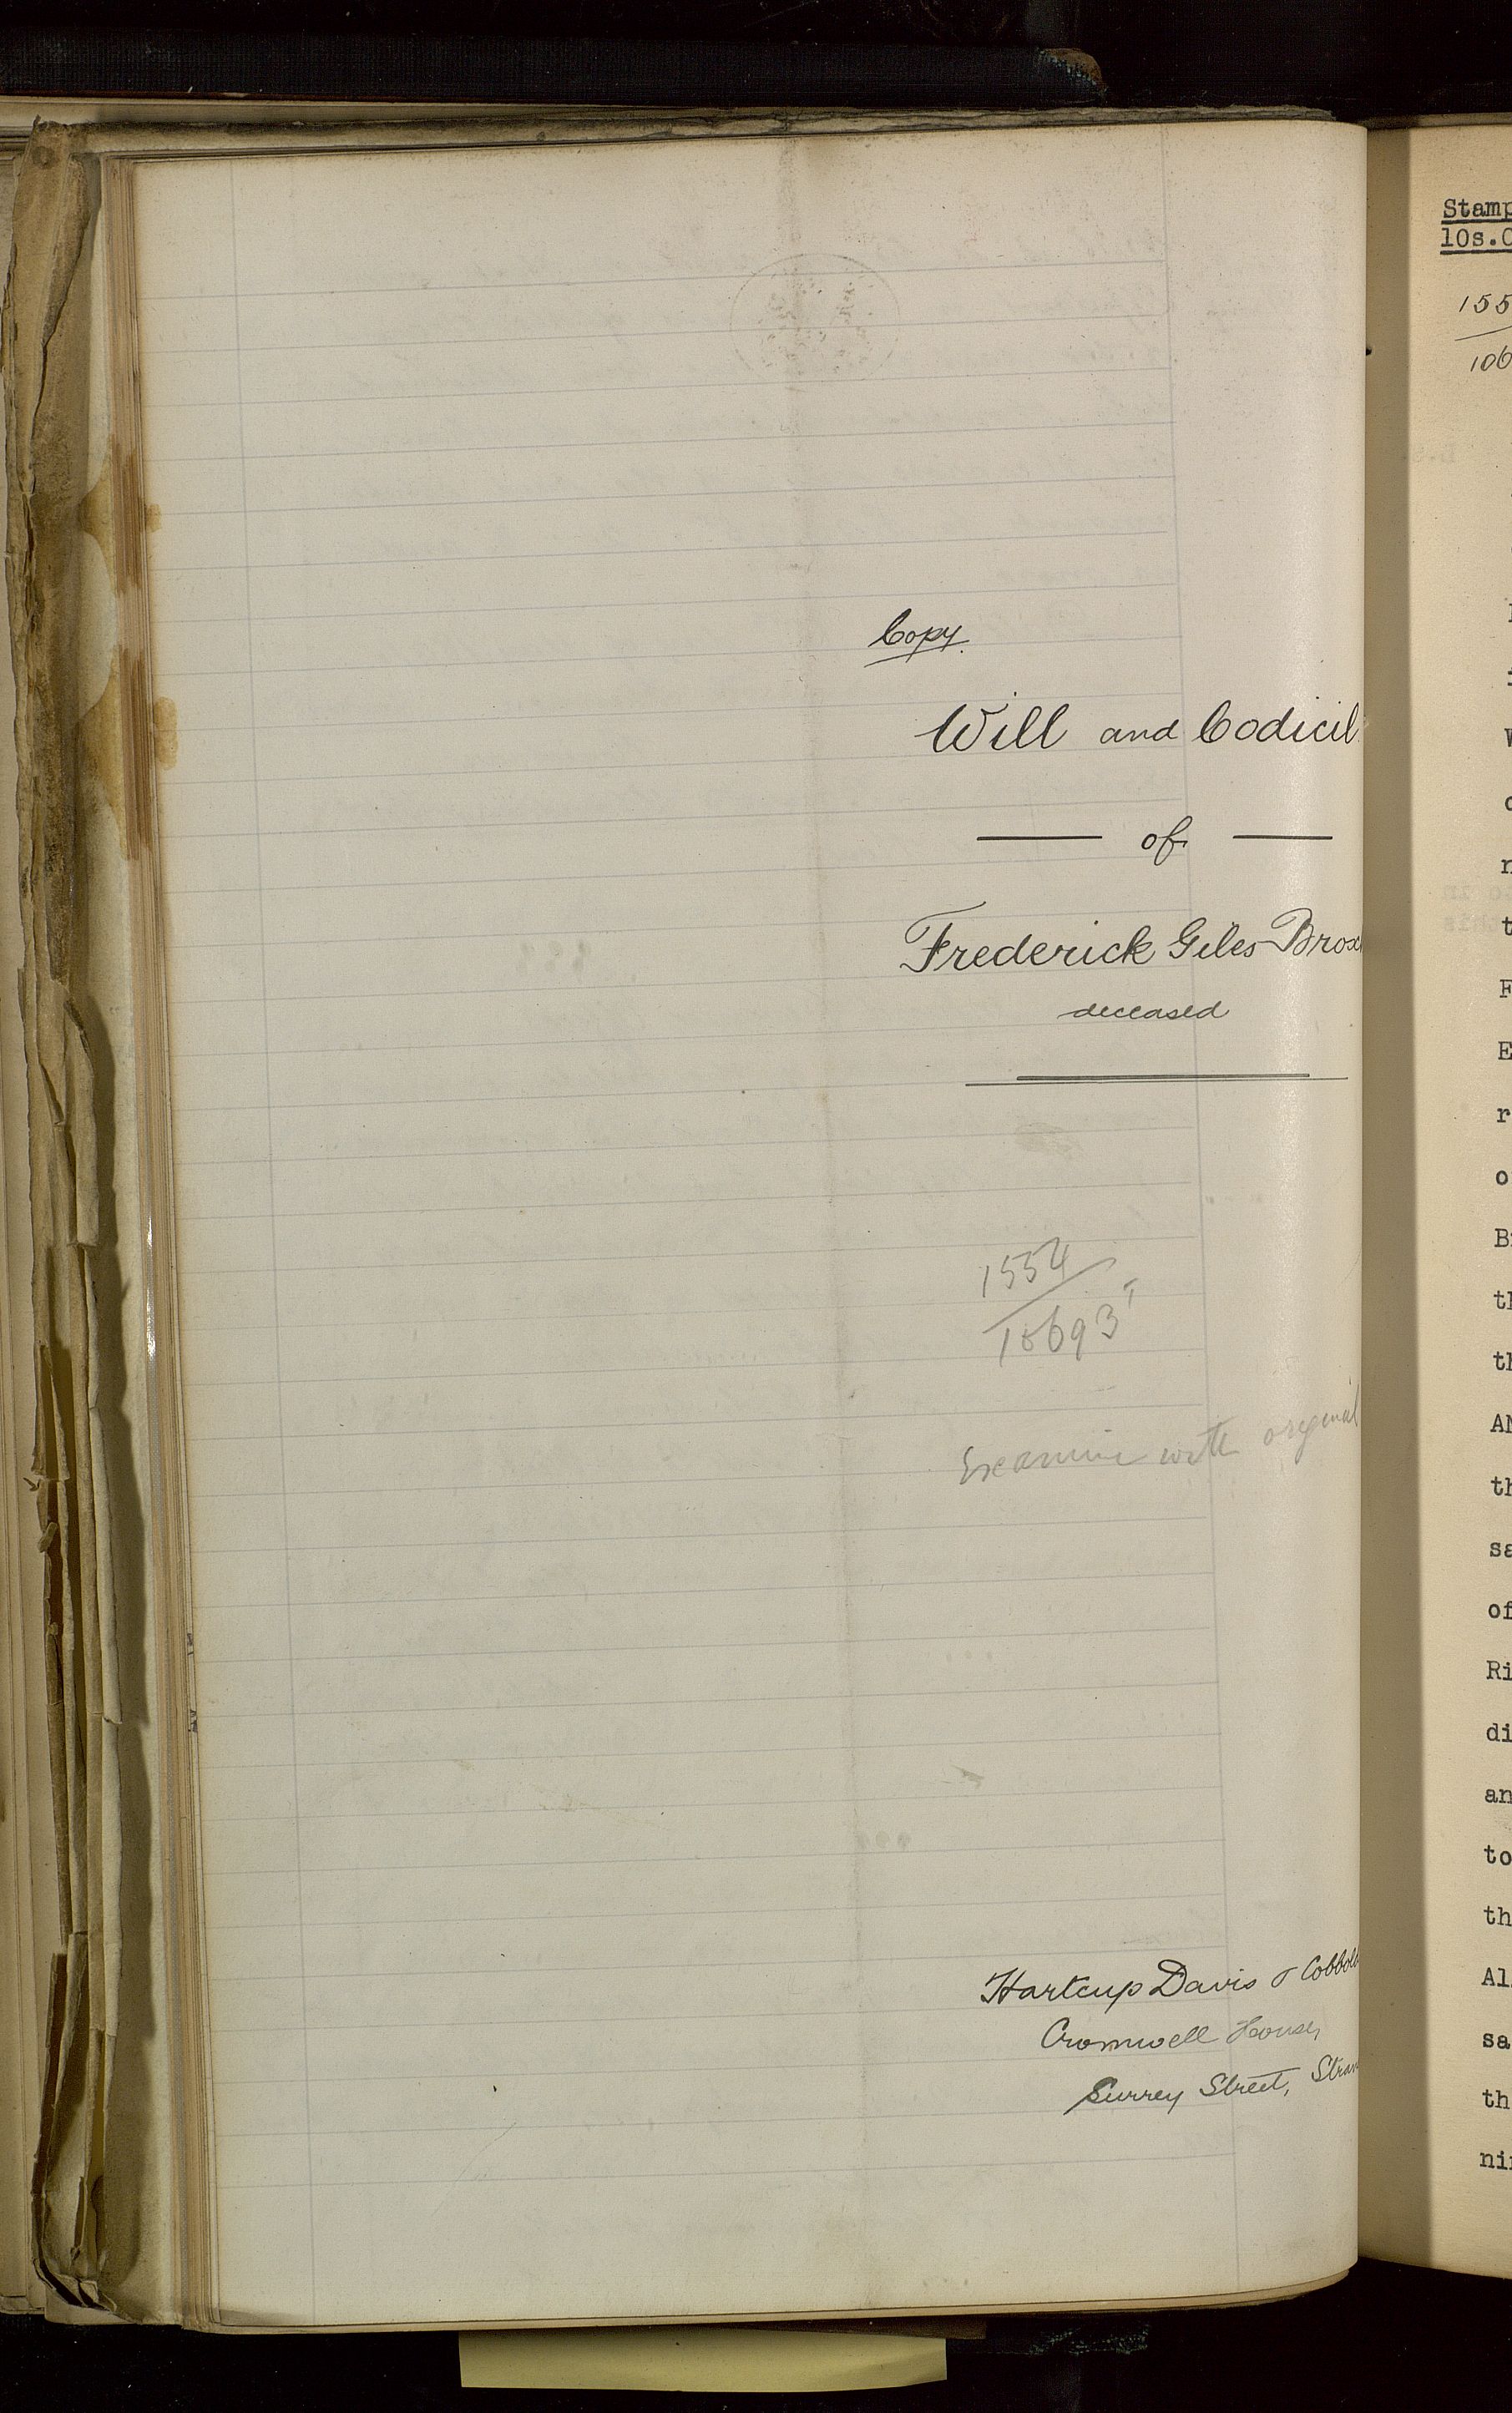 Copy.
Will and Codicil
of
Frederick Giles Brox
deceased
1554
10693
Examine with original
Hartcup Davis & Cobbold
Cromwell House,
Surrey Street, Stran
Stamp
10s.0
155
106
W
r
t
F
E
r
o
B
th
th
AN
th
sa
of
Ri
di
an
to
th
Al
sa
th
nin